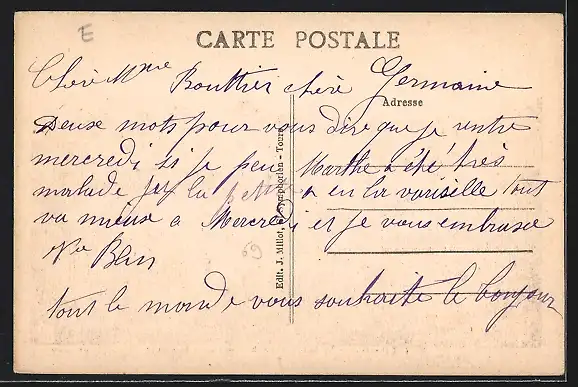 E
CARTE POSTALE
Chère Mme Bouttier chère Germaine
Adresse
Deuse mots pour vous dire que je rentre
mercredi si je peu Marthe a été très
malade la petite a eu la variselle tout
va mieuse a Mercredi et je vous embrasse
Vve
tout le monde vous souhaite le bonjour
Edit. J. Millot, - Tours